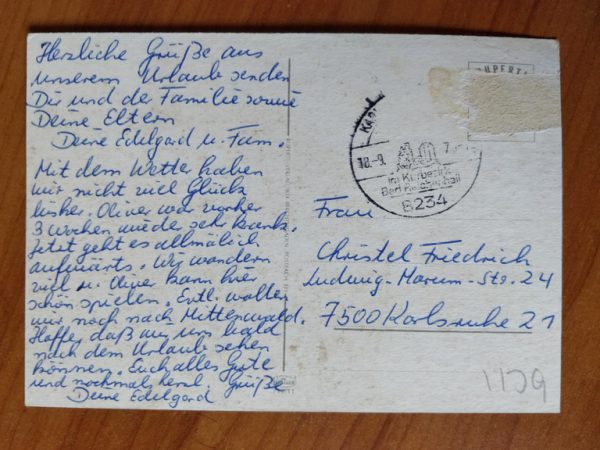 Herzliche Grüße aus
unserem Urlaub senden
Dir und der Familie sowie
Deine Eltern
Deine Edelgard u. Fam.
Mit dem Wetter haben
wir nicht viel Glück
bisher. Oliver war vorher
3 Wochen wieder sehr krank.
Jetzt geht es allmälich
aufwärts. Wir wandern
viel u. Oliver kann hier
schön spielen. Evtl. wollen
wir noch nach Mittenwald.
Hoffe, daß wir uns bald
nach dem Urlaub sehen
können. Euch alles Gute
und nochmals herzl. Grüße
Deine Edelgard
RUPERT
18.-9.
im Kurbezirk
Bad Reichenhall
8234
Frau
Christel Friedrich
Ludwig-Marum-Str. 24
7500 Karlsruhe 21